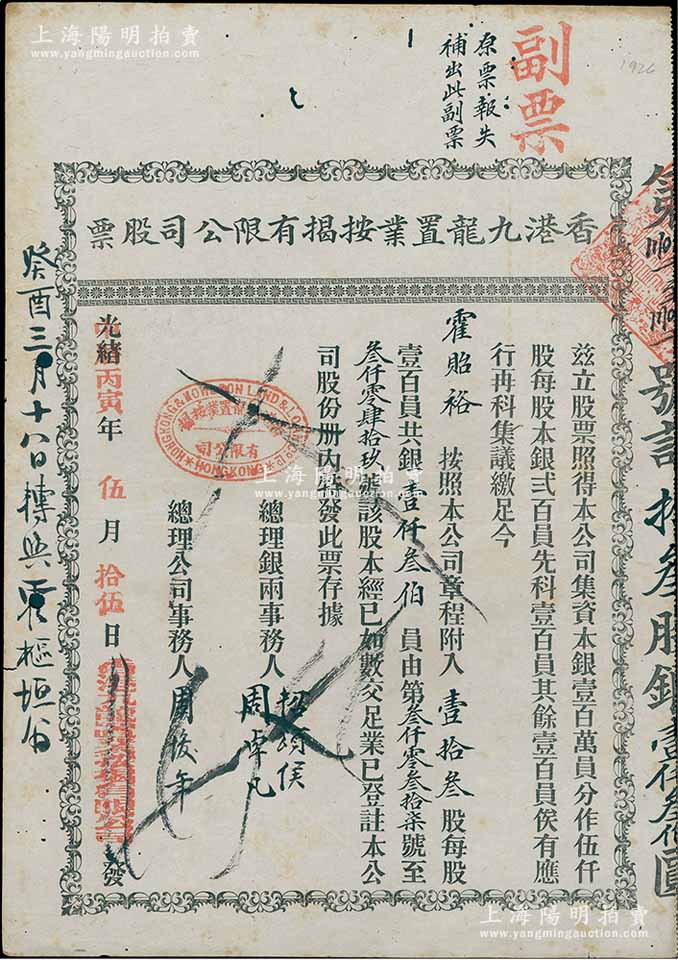 上海陽明拍賣
www.yangmingauction.com
1926
副票
原票報失
補出此副票
香港九龍置業按揭有限公司股票
茲立股票照得本公司集資本銀壹百萬員分作伍仟
股每股本銀弍百員先科壹百員其餘壹百員俟有應
行再科集議繳足今
霍貽裕 按照本公司章程附入壹拾叁股每股
壹百員共銀壹仟叁伯員由第叁仟零叁拾柒號至
叁仟零肆拾玖號該股本經已如數交足業已登註本公
司股份册內發此票存據
總理銀兩事務人
周卓凡
總理公司事務人 周後年
光緒丙寅年伍月拾伍日
發
HONGKONG & KOWLOON LAND & LOAN
有限公司
HONGKONG
癸酉三月十八日轉與霍樞垣
號計拾叁股銀壹仟叁伯圓
上海陽明拍賣
www.yangmingauction.com
上海陽明拍賣
www.yangmingauction.com